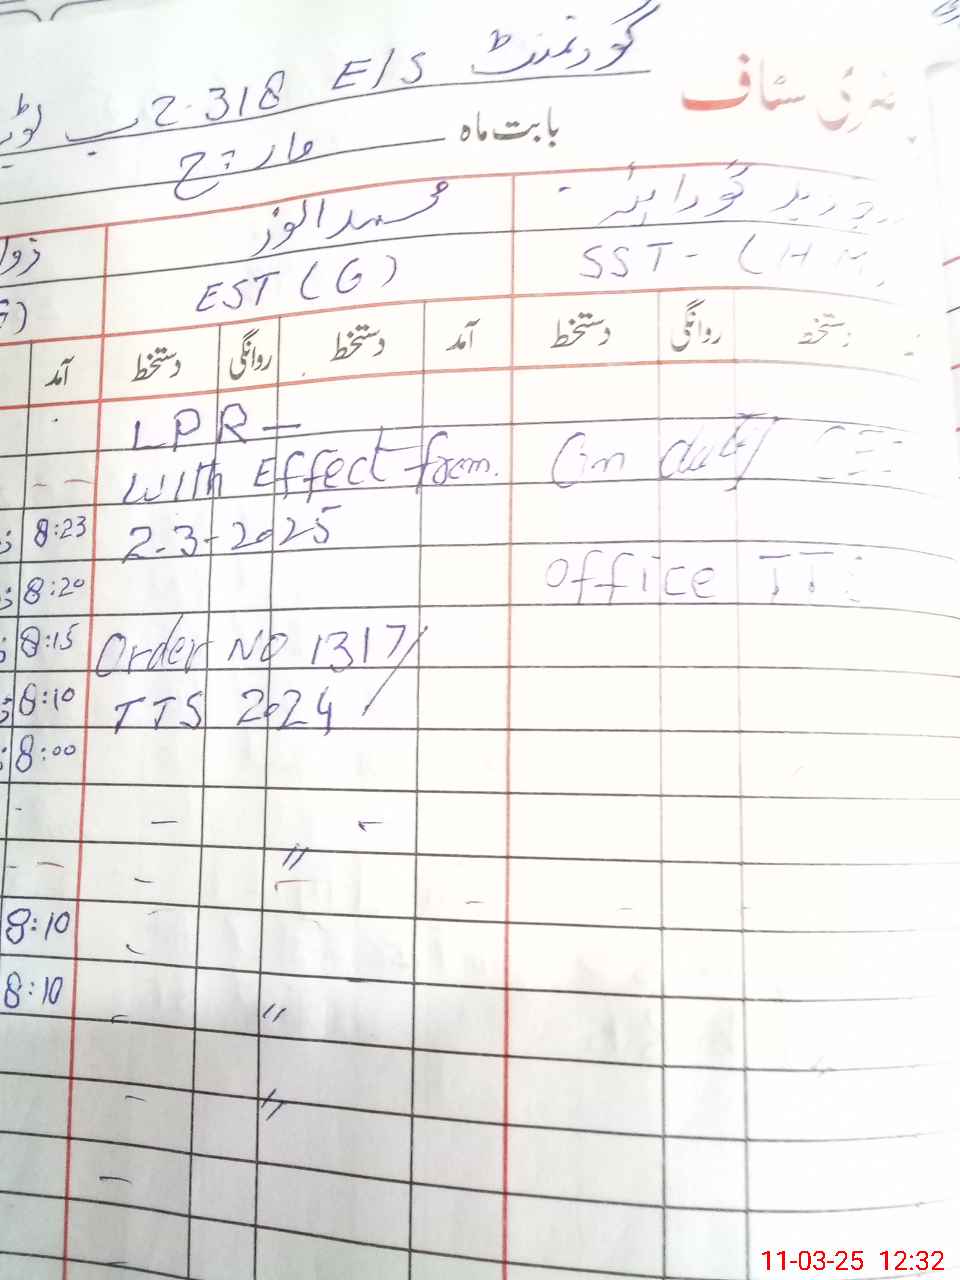 سٹاف
گورنمنٹ E/S 318-2 ب
بابت ماہ مارچ
محمد انور
SST - (HM
EST (G)
آمد دستخط روانگی دستخط آمد دستخط روانگی دستخط
LPR -
With Effect from.
On duty
8:23
2-3-2025
8:20
Office TT
8:15
Order NO 1317/
8:10
TTS 2024
8:00
〃
8:10
8:10
〃
〃
11-03-25 12:32